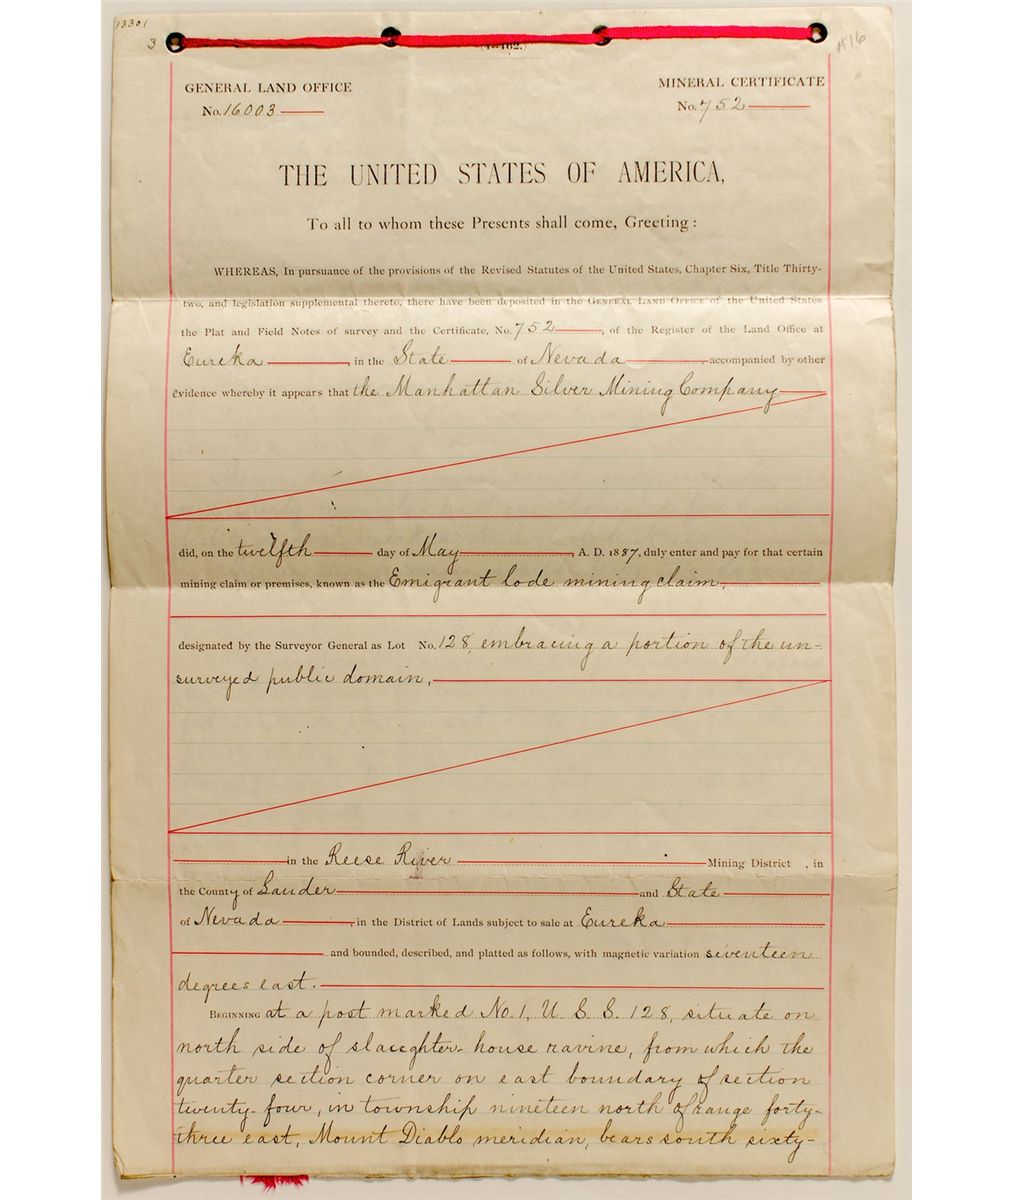 13301
3
#16
GENERAL LAND OFFICE
No. 16003
MINERAL CERTIFICATE
No. 752
THE UNITED STATES OF AMERICA,
To all to whom these Presents shall come, Greeting:
WHEREAS, In pursuance of the provisions of the Revised Statutes of the United States, Chapter Six, Title Thirty-
two, and legislation supplemental thereto, there have been deposited in the GENERAL LAND OFFICE of the United States
the Plat and Field Notes of survey and the Certificate, No. 752, of the Register of the Land Office at
Eureka, in the State of Nevada, accompanied by other
evidence whereby it appears that the Manhattan Silver Mining Company
did, on the twelfth day of May, A. D. 1887, duly enter and pay for that certain
mining claim or premises, known as the Emigrant lode mining claim,
designated by the Surveyor General as Lot No. 128, embracing a portion of the un-
surveyed public domain,
in the Reese River Mining District, in
the County of Lander and State
of Nevada, in the District of Lands subject to sale at Eureka
and bounded, described, and platted as follows, with magnetic variation seventeen
degrees east.
BEGINNING at a post marked No. 1, U. S. S. 128, situate on
north side of slaughter-house ravine, from which the
quarter section corner on east boundary of section
twenty-four, in township nineteen north of range forty-
three east, Mount Diablo meridian, bears south sixty-